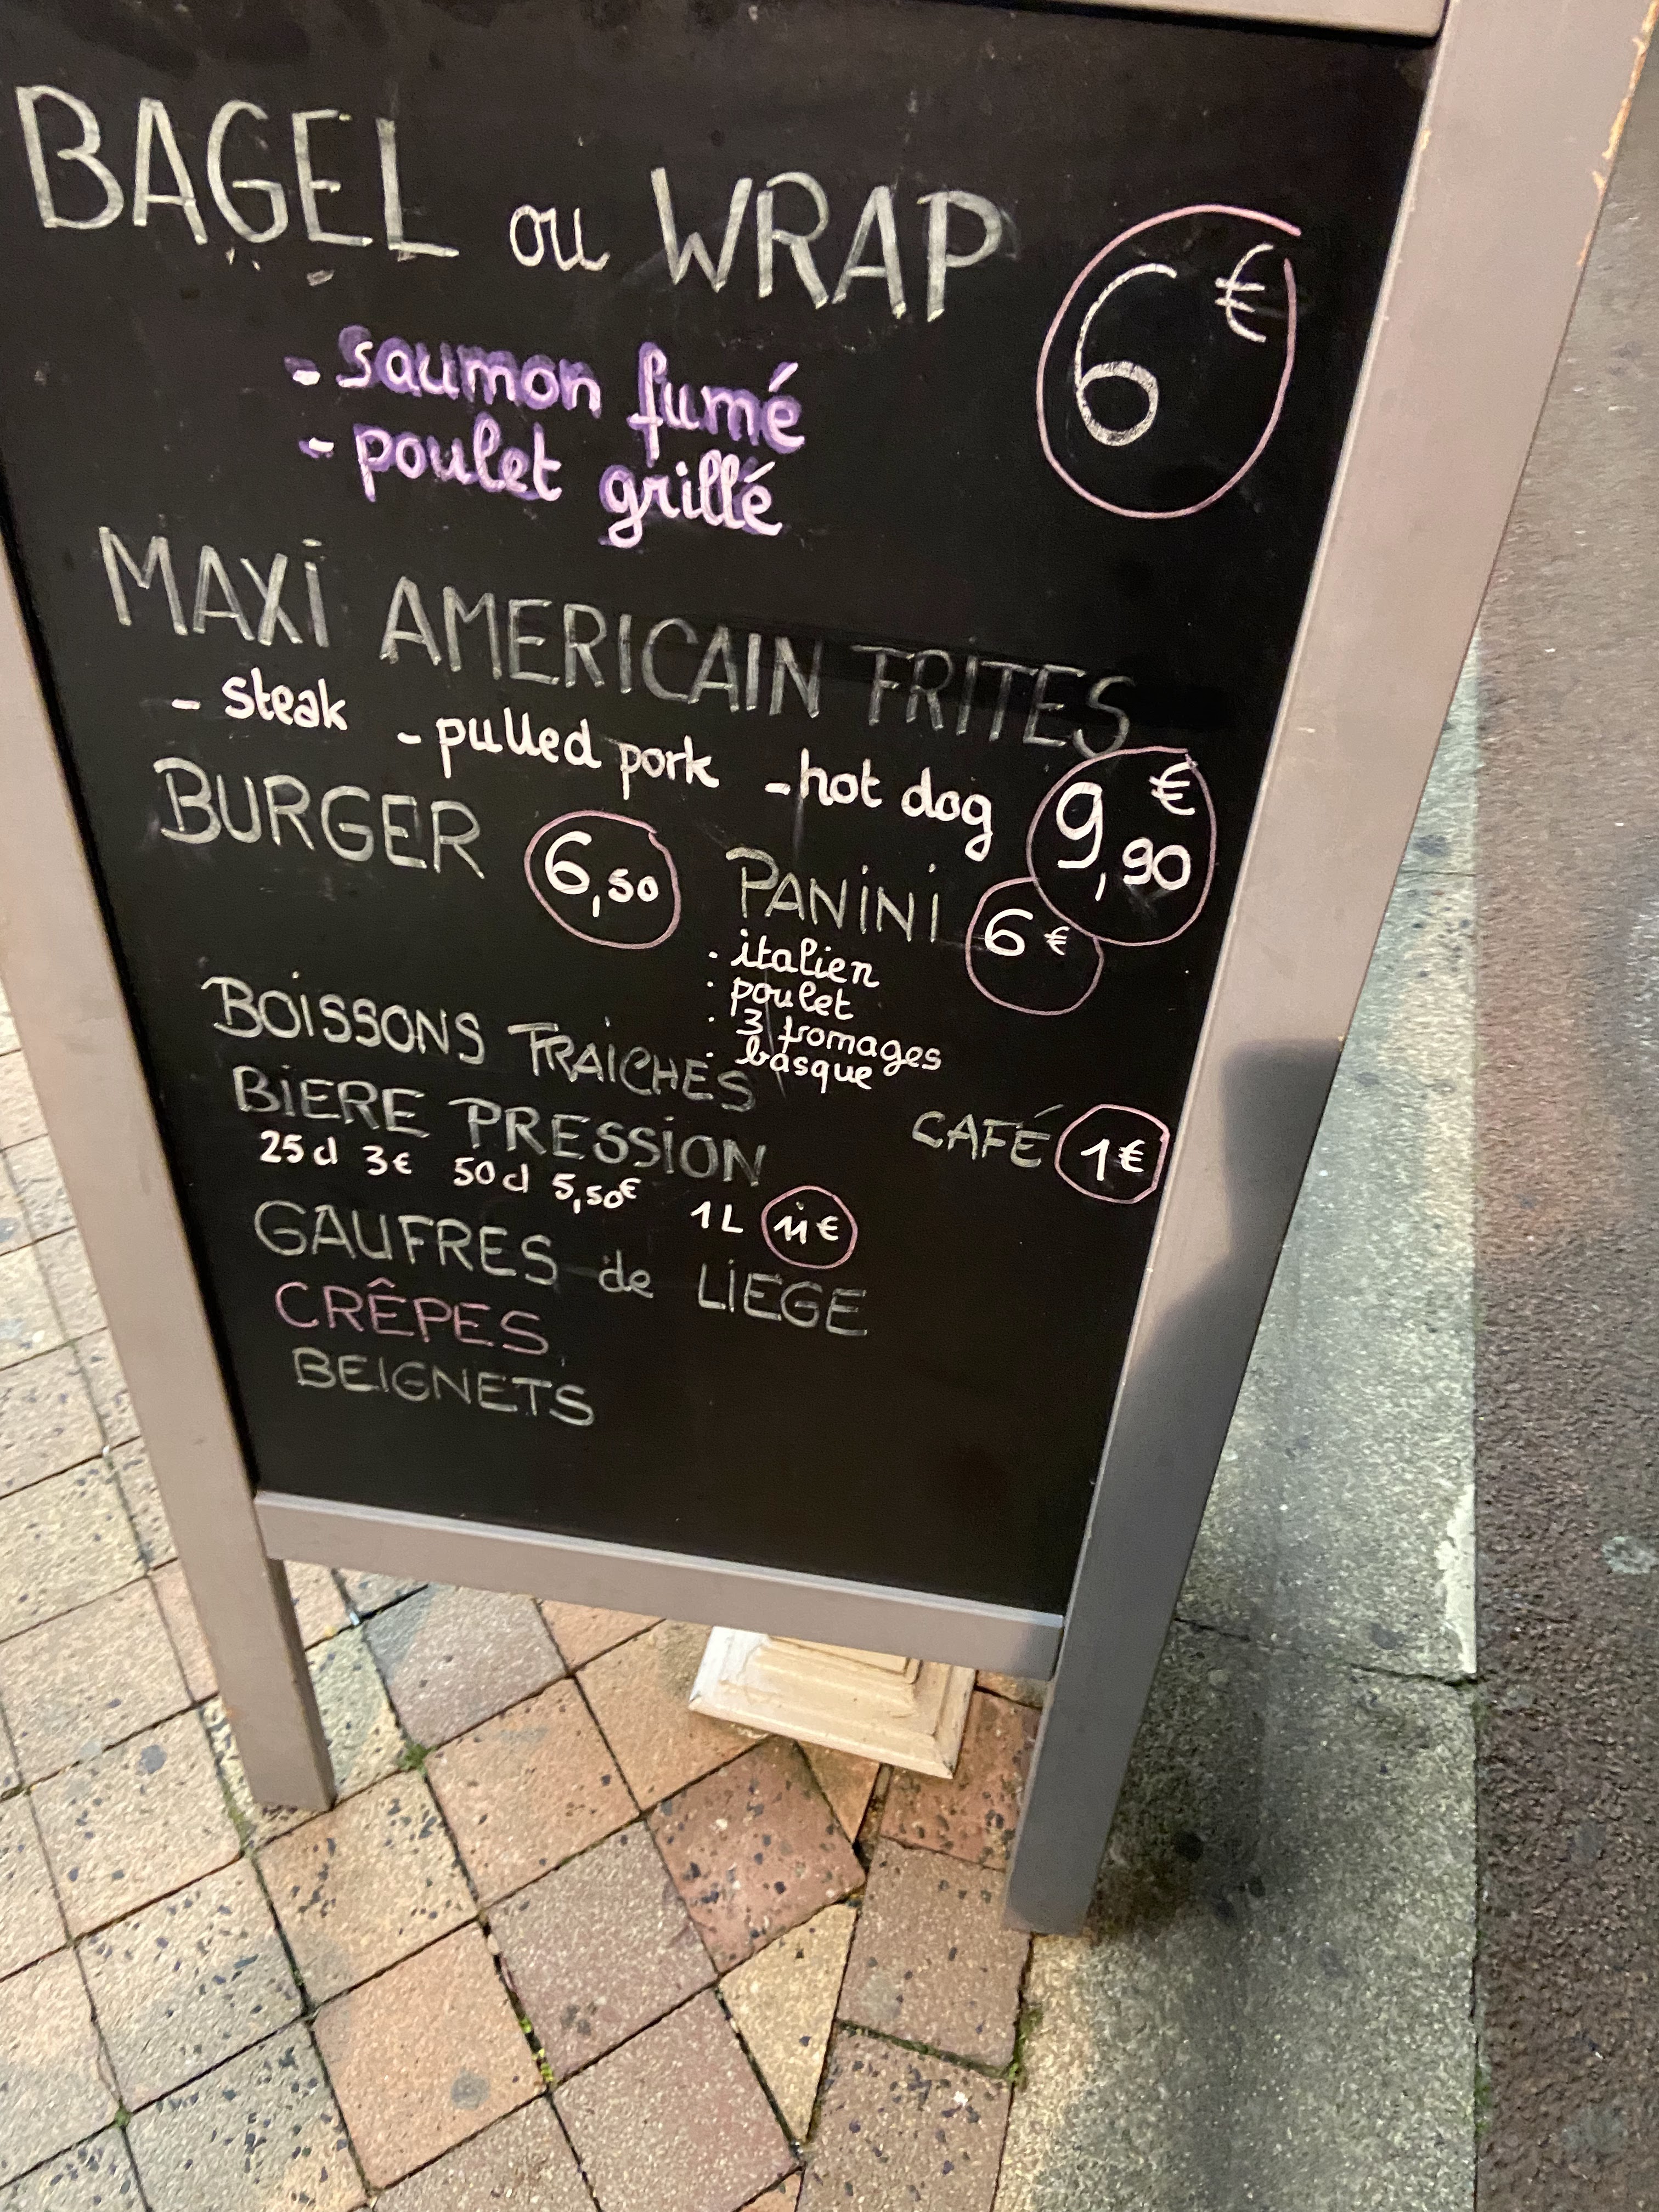 BAGEL ou WRAP 6€
- saumon fumé
- poulet grillé
MAXI AMERICAIN FRITES
- steak - pulled pork - hot dog 9,90€
BURGER 6,50 PANINI 6€
· italien
· poulet
· 3 fromages
· basque
BOISSONS FRAICHES
BIERE PRESSION CAFÉ 1€
25cl 3€ 50cl 5,50€ 1L 11€
GAUFRES de LIEGE
CRÊPES
BEIGNETS